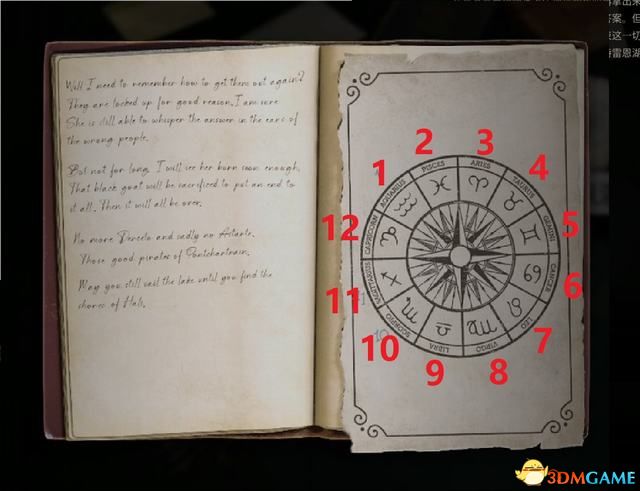 Will I need to remember how to get them out again?
They are locked up for good reason. I am sure
She is still able to whisper the answer in the ears of
the wrong people.
But not for long. I will see her burn soon enough.
That black goat will be sacrificed to put an end to
it all. Then it will all be over.
No more Derceto and sadly no Astarte.
Those good pirates of Pontchartrain.
May you still sail the lake until you find the
shores of Hali.
1
2
3
4
5
6
7
8
9
10
11
12
AQUARIUS
PISCES
ARIES
TAURUS
GEMINI
CANCER
LEO
VIRGO
LIBRA
SCORPIO
SAGITTARIUS
CAPRICORN
10
案。但
这一切
雷恩湖
3DMGAME